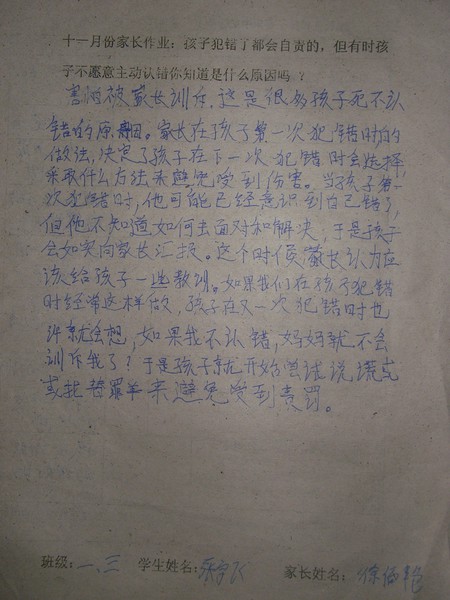 十一月份家长作业：孩子犯错了都会自责的，但有时孩
子不愿意主动认错你知道是什么原因吗？
害怕被家长训斥，这是很多孩子死不认
错的原因。家长在孩子第一次犯错时的
做法，决定了孩子在下一次犯错时会选择
采取什么方法来避免受到伤害。当孩子第一
次犯错时，他可能已经意识到自己错了，
但他不知道如何去面对和解决，于是孩子
会如实向家长汇报。这个时候家长认为应
该给孩子一些教训。如果我们在孩子犯错
时经常这样做，孩子在又一次犯错时也
许就会想，如果我不认错，妈妈就不会
训斥我了？于是孩子就开始尝试说谎或
或找替罪羊来避免受到责罚。
班级：一、三 学生姓名： 家长姓名：徐